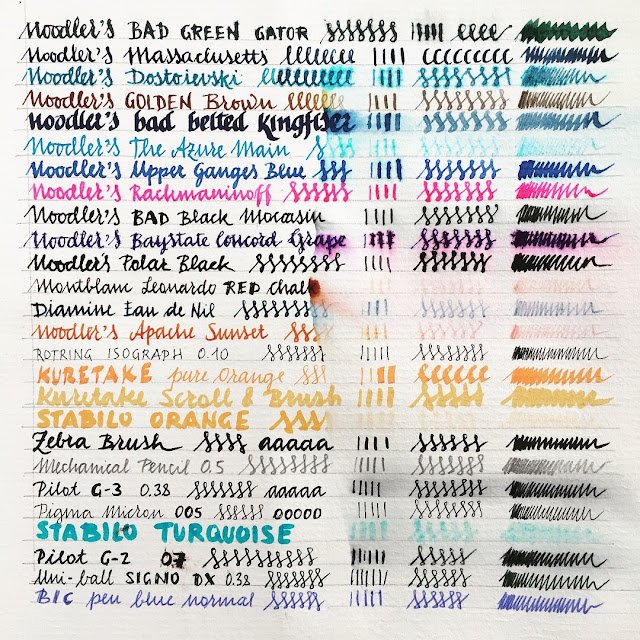 Noodler's BAD GREEN GATOR
Noodler's Massachusetts
Noodler's Dostoievski
Noodler's GOLDEN Brown
Noodler's bad belted Kingfiser
Noodler's The Azure Main
Noodler's Upper Ganges Blue
Noodler's Rachmaninoff
Noodler's BAD Black Mocasin
Noodler's Baystate Concord Grape
Noodler's Polar Black
Montblanc Leonardo RED chalk
Diamine Eau de Nil
Noodler's Apache Sunset
ROTRING ISOGRAPH 0.10
KURETAKE pure Orange
Kuretake Scroll & Brush
STABILO ORANGE
Zebra Brush aaaaa
Mechanical Pencil 0.5
Pilot G-3 0.38 aaaaa
Pigma Micron 005 00000
STABILO TURQUOISE
Pilot G-2 07
Uni-ball SIGNO DX 0.38
BIC pen blue normal